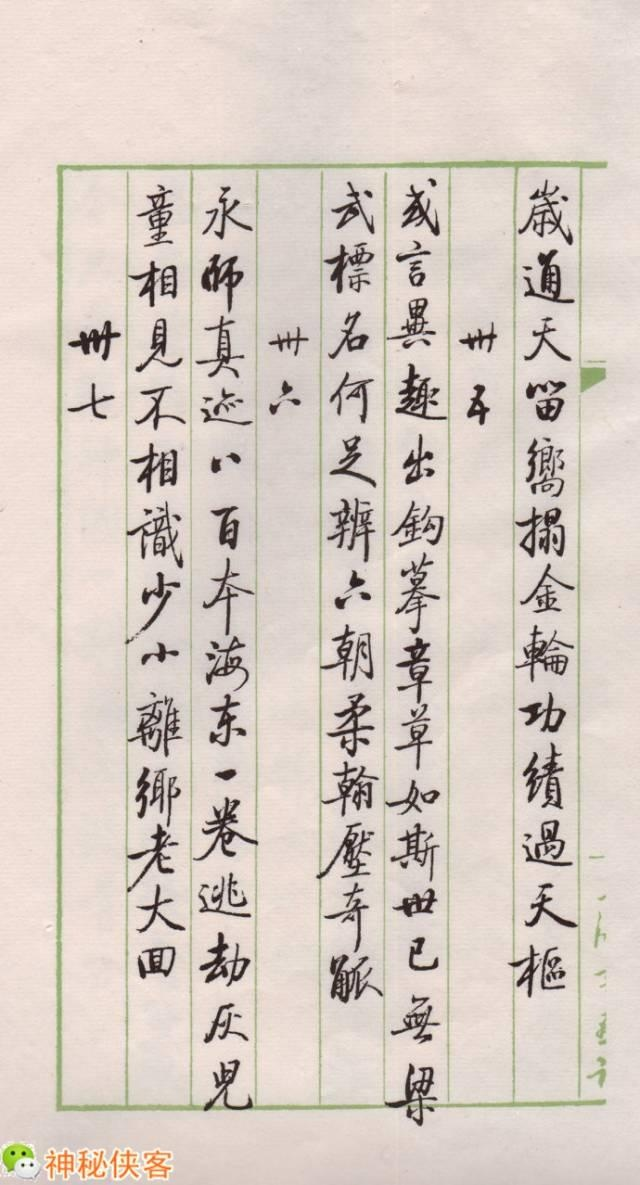 歲通天留嚮搨金輪功績過天樞
卅五
或言異趣出鈎摹章草如斯世已無梁
武標名何足辨六朝柔翰壓奇觚
卅六
永師真迹八百本海东一卷逃劫灰兒
童相見不相識少小離鄉老大回
卅七
神秘侠客